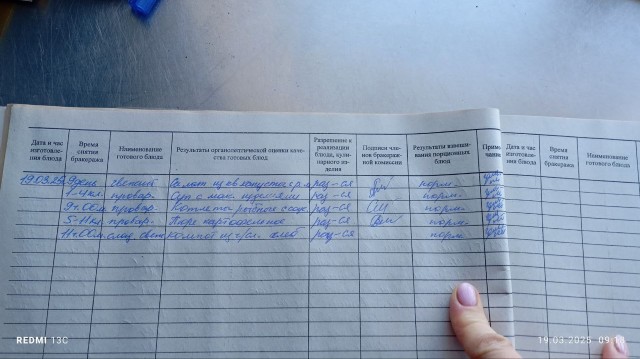 Дата и час изготовления блюда
Время снятия бракеража
Наименование готового блюда
Результаты органолептической оценки качества готовых блюд
Разрешение к реализации блюда, кулинарного изделия
Подписи членов бракеражной комиссии
Результаты взвешивания порционных блюд
Примечание
Дата и час изготовления блюда
Время снятия бракеража
Наименование готового блюда
19.03 свежий Салат из св капусты раз-ся норм.
1-4кл. провар. Суп с мак. раз-ся норм.
9ч.00м. провар. Котлета рыбная с соус. раз-ся норм.
5-11кл провар. Пюре картофельное раз-ся норм.
11ч.00м. слад. свеж Компот из с/сл. хлеб раз-ся норм.
REDMI 13C
19.03.2025 09:13